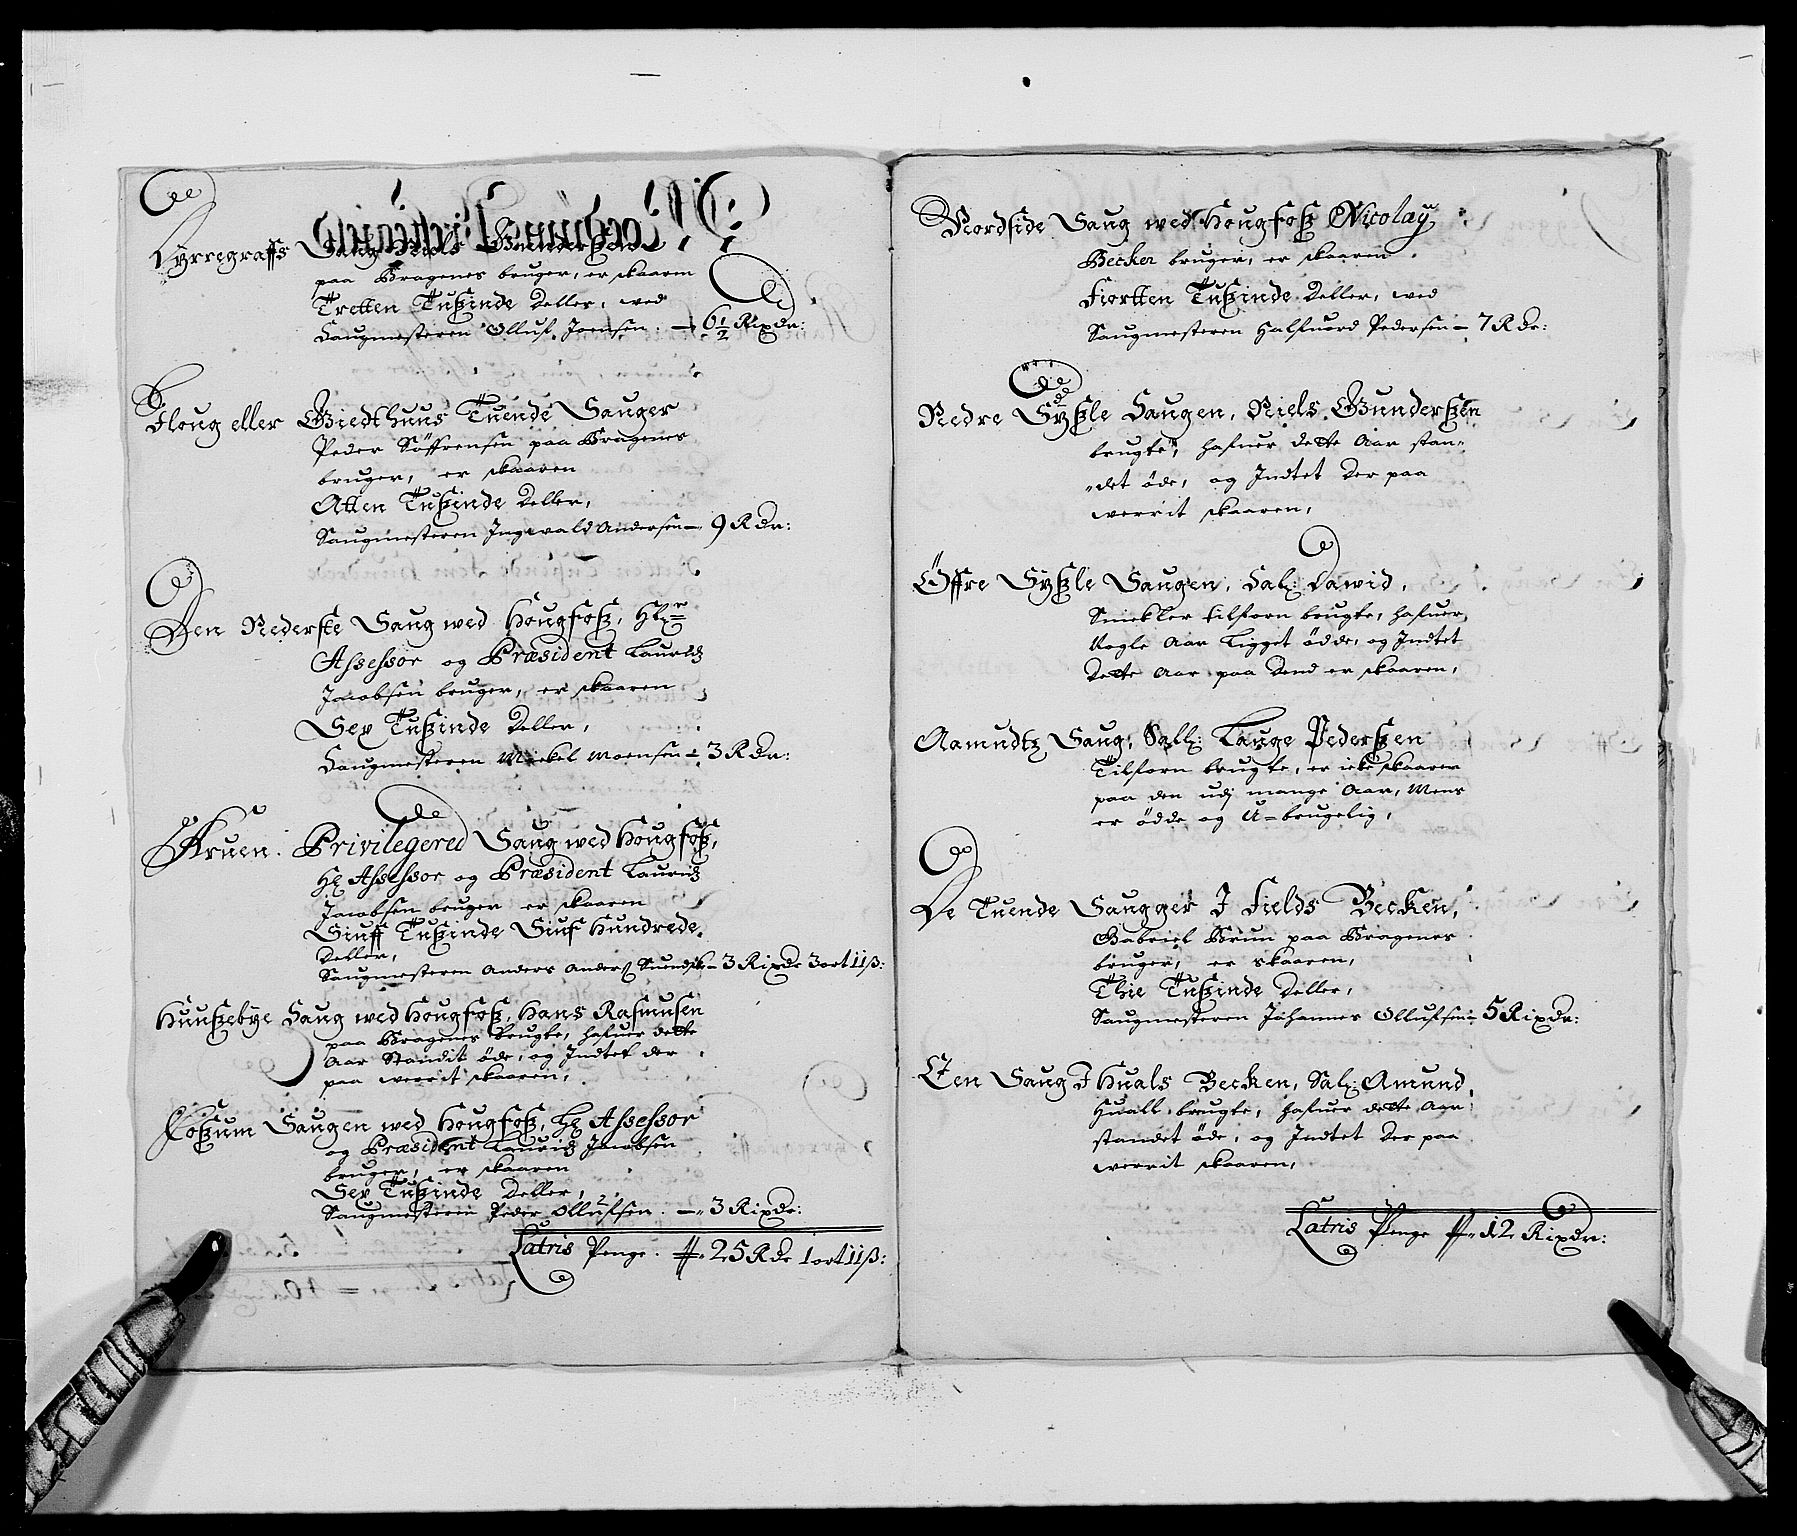 Lyrregraffs Saug Niels Gundersen
paa Bragenes bruger, er skaaren
Tretten Tußinde Deller, wed
Saugmesteren Olluf Joensen. — 6½ Rixdr:
Houg eller Giedthuus Tuende Sauger
Peder Söffrensen paa Bragenes
bruger, er skaaren
Atten Tußinde Deller,
Saugmesteren Ingwald Andersen — 9 Rdr:
Den Nederste Saug wed Hougfoß, Hr
Assessor og Præsident Lauridz
Jacobsen bruger, er skaaren
Sex Tußinde Deller,
Saugmesteren Mickel Moensen — 3 Rdr:
Kruen. Privilegered Saug wed Hougfoß,
Hr Assessor og Præsident Lauridz
Jacobsen bruger er skaaren
Siuff Tußinde Siuf Hundrede
Deller,
Saugmesteren Anders Anders — 3 Rixdr 3 ort 11 ß:
Huußebye Saug wed Hougfoß, Hans Rasmusen
paa Bragenes brugte, hafuer dette
Aar Standit öde, og Indtet der
paa werrit skaaren,
Foßum Saugen wed Hougfoß, Hr Assessor
og Præsident Lauridz Jacobsen
bruger, er skaaren
Sex Tußinde Deller,
Saugmesteren Peder Ollufsen. — 3 Rixdr:
Latris Penge. 25 Rdr 1 ort 11 ß:
Nordside Saug wed Hougfoß Nicolay
Becker bruger, er skaaren
Fiortten Tußinde Deller, wed
Saugmesteren Halfuord Pedersen — 7 Rdr:
Nedre Syßle Saugen, Niels Gunderßen
brugte, hafuer dette Aar stan-
det öde, og Indtet Der paa
werrit skaaren,
Öffre Syßle Saugen, Sal: Dawid
tilforn brugte, hafuer
Nogle Aar Ligget ödde, og Indtet
Dette Aar paa Dend er skaaren,
Aamundtz Saug, Sall: Lauge Pederßen
Tilforn brugte, er icke skaaren
paa den udj mange Aar, Mens
er ödde og U-brugelig,
De Tuende Saugger I Fields Becken,
Gabriel Brun paa Bragenes
bruger, er skaaren,
Thie Tußinde Deller,
Saugmesteren Johannes Ollufsen — 5 Rixdr:
Een Saug I Huals Becken, Sal: Amund
Huall brugte, hafuer dette Aar
standet öde, og Indtet Der paa
werrit skaaren,
Latris Penge 12 Rixdr: